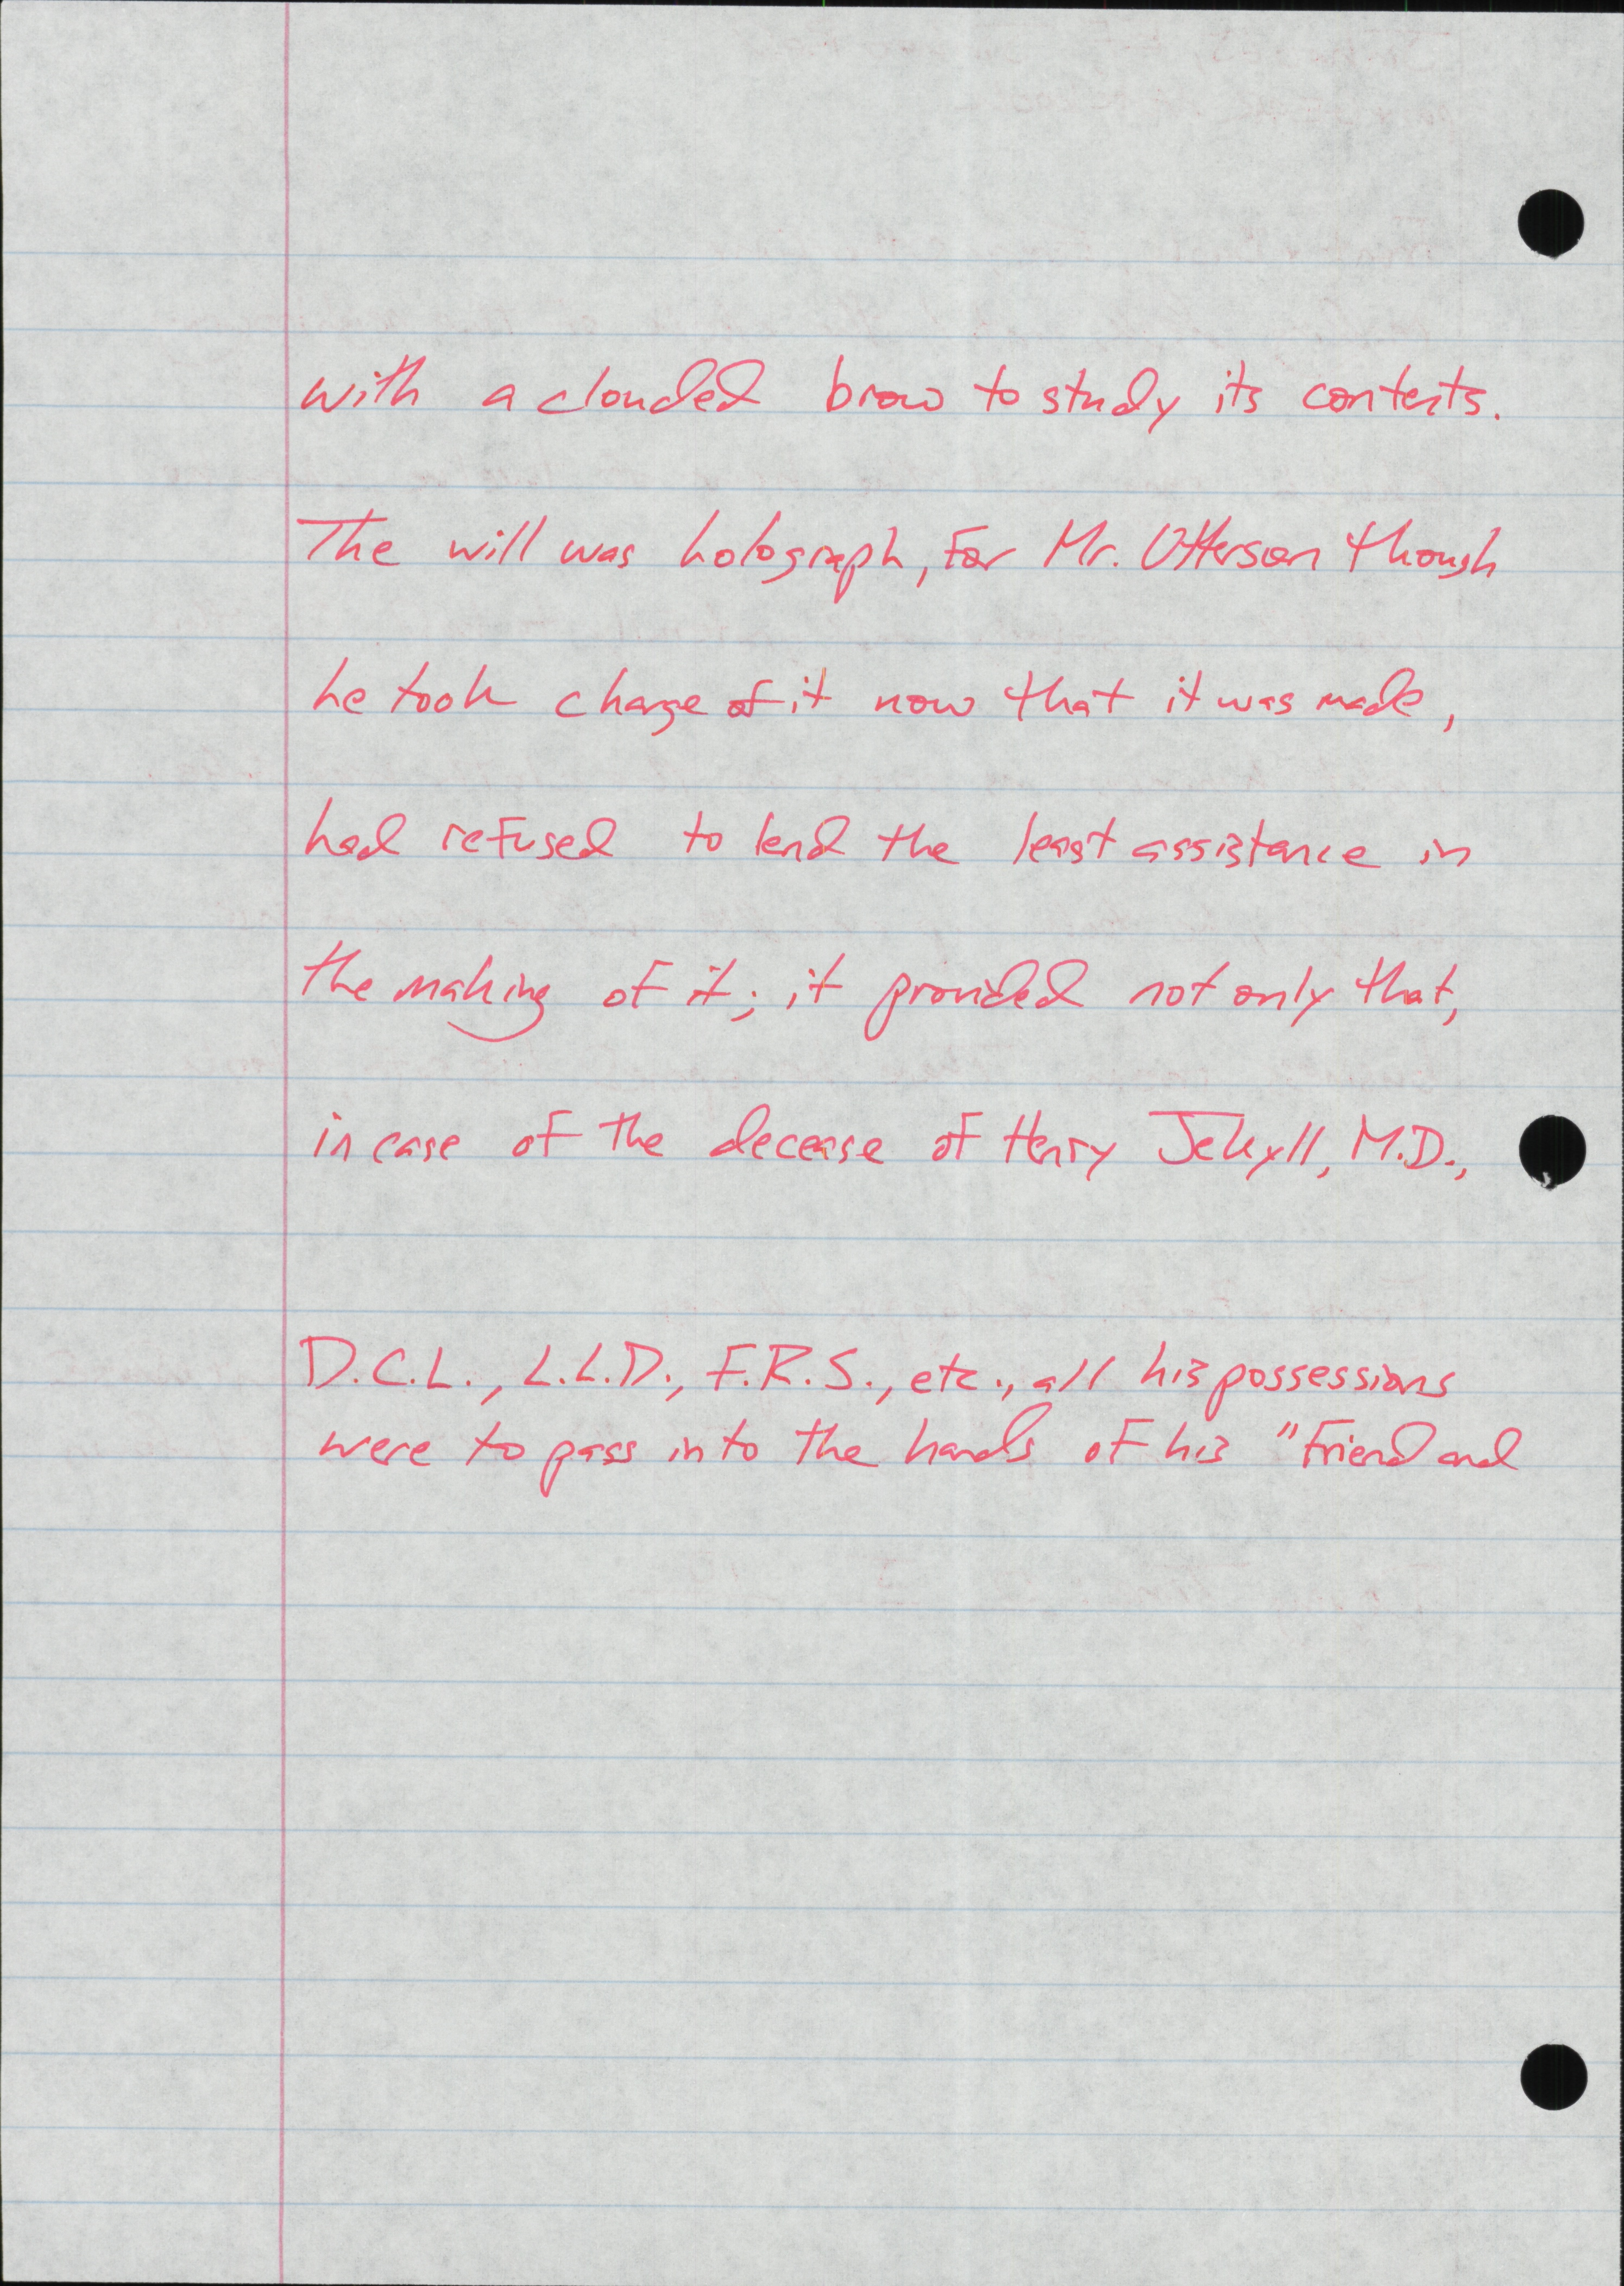 with a clouded brow to study its contents.
The will was holograph, for Mr. Utterson though
he took charge of it now that it was made,
had refused to lend the least assistance in
the making of it; it provided not only that,
in case of the decease of Henry Jekyll, M.D.,
D.C.L., L.L.D., F.R.S., etc., all his possessions
were to pass into the hands of his "friend and